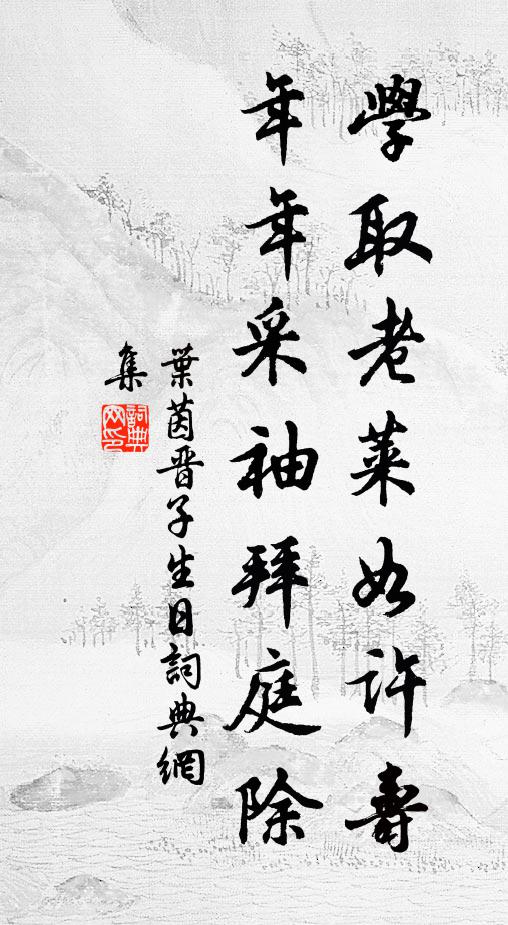 學取老萊如許壽
年年采袖拜庭除
葉茵晋子生日詞典網
集
詞典
网印